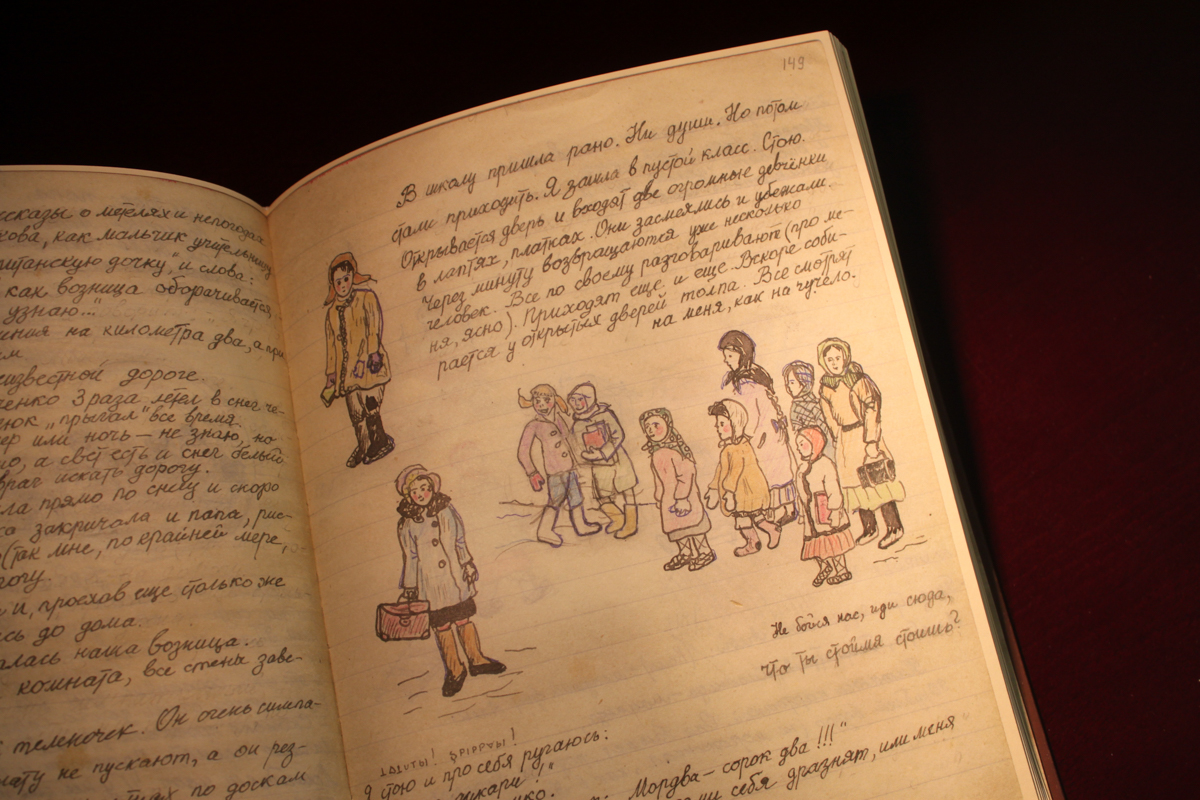 ссказы о метелях и непогодах
кова, как мальчик учительницу
питанскую дочку", и слова:
как возница оборачивается
узнаю..."
ния на километра два, а при
ем
еизвестной дороге.
ченко 3 раза летел в снег че-
нюк „прыгал" все время.
ер или ночь — не знаю, но
но, а свет есть и снег белый
врач искать дорогу.
ла прямо по снегу и скоро
са закричала и папа, рис-
(так мне, по крайней мере,
рогу.
и, проехав еще столько же
сь до дома.
алась наша возница.
комната, все стены заве-
теленочек. Он очень симпа-
нату не пускают, а он рез-
по доскам
149
В школу пришла рано. Ни души. Но потом
стали приходить. Я зашла в пустой класс. Стою.
Открывается дверь и входят две огромные девчёнки
в лаптях, платках. Они засмеялись и убежали.
Через минуту возвращаются уже несколько
человек. Все по своему разговаривают (про ме-
ня, ясно). Приходят еще и еще. Вскоре соби-
рается у открытых дверей толпа. Все смотрят
на меня, как на чучело.
Не бойся нас, иди сюда,
Что ты стоймя стоишь?
Я стою и про себя ругаюсь:
Мордва — сорок два!!!"
себя дразнят, или меня